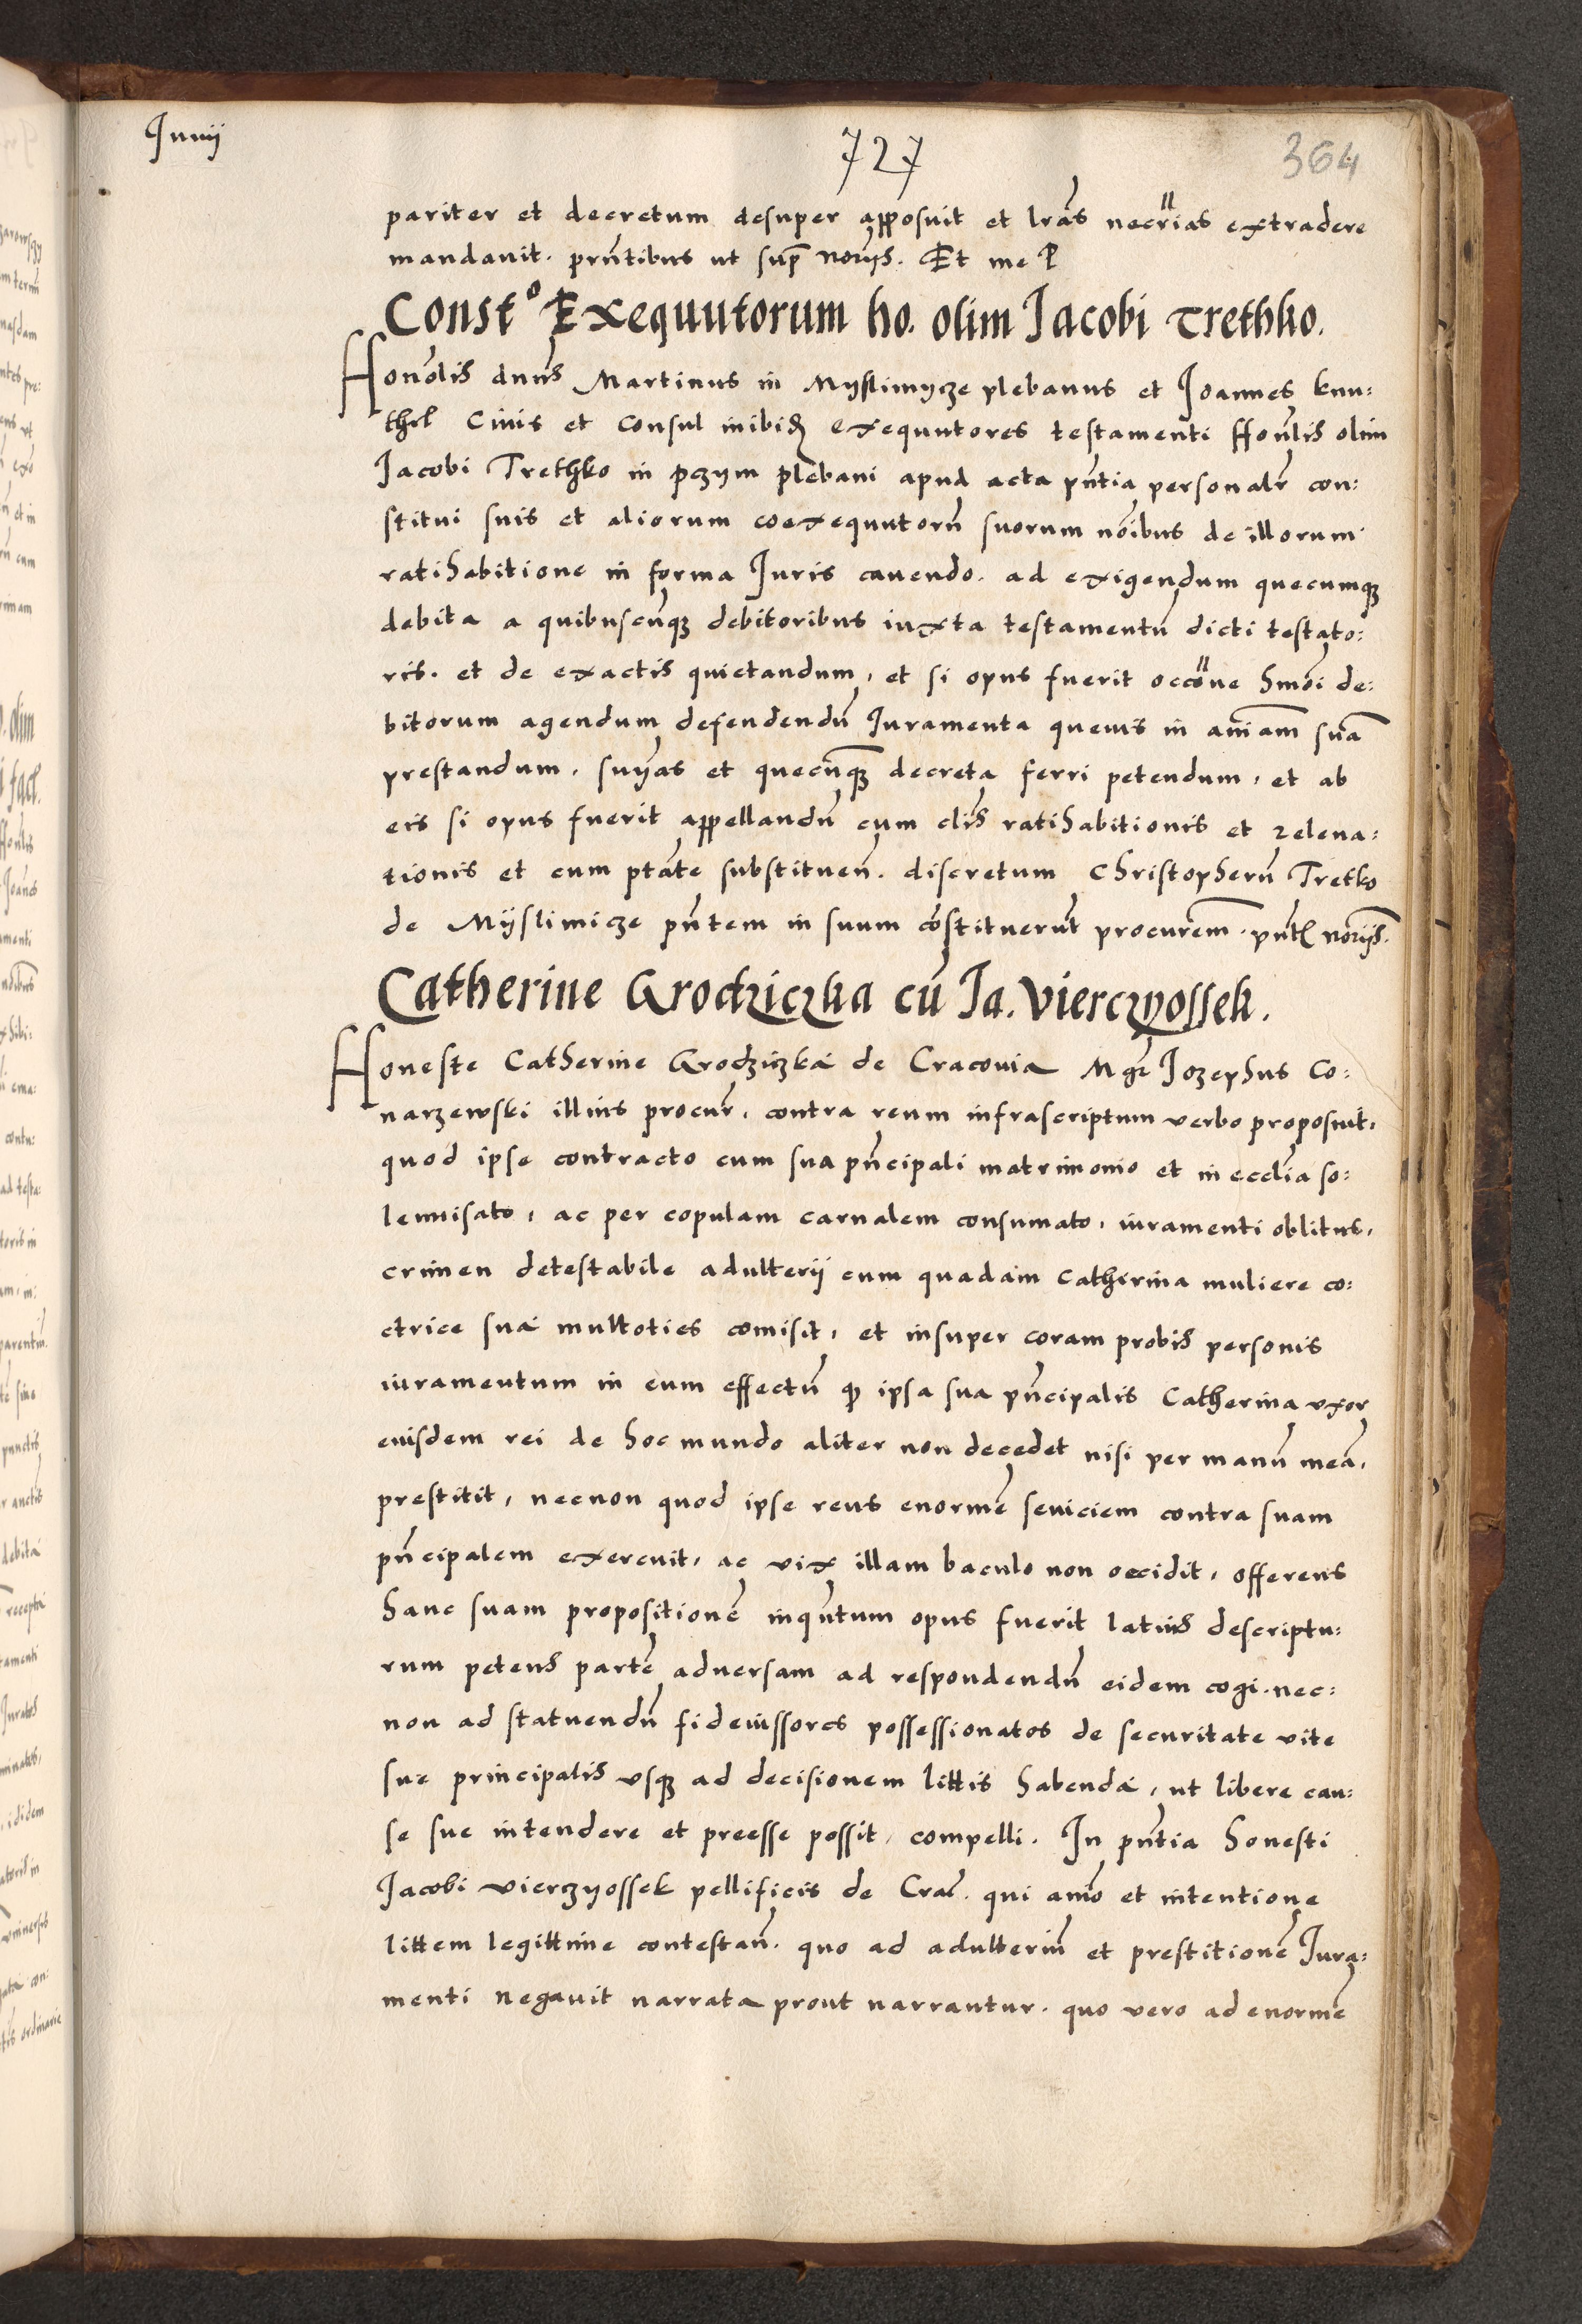 Junij
727
364
pariter et decretum desuper apposuit et lrãs necr̃ias extradere
mandavit. prñtibus ut supr̃ norijs. Et me P
Const⁰ Exequutorum ho. olim Jacobi Trethko.
Honõlis dnũs Martinus in Myslimycze plebanus et Joannes knu:
thel Civis et Consul inibid exequutores testamenti Honõlis olim
Jacobi Trethko in pczym plebani apud acta pñtia personalr̃ con:
stituti suis et aliorum coexequutorũ suorum nõibus de illorum
ratihabitione in forma Juris cavendo. ad exigendum quecumq3
debita a quibuscũq3 debitoribus iuxta testamentũ dicti testato:
ris. et de exactis quietandum, et si opus fuerit occõne hmõi de:
bitorum agendum defendendũ Juramenta quevis in aniãm suã
prestandum. snijas et quecũq3 decreta ferri petendum, et ab
eis si opus fuerit appellandũ cum clis̃ ratihabitionis et releva:
tionis et cum ptãte substituen̄. discretum Christopherũ Tretko
de Myslimicze pñtem in suum cõstituerũt procurem̃. pñt norijs.
Catherine Grodziczka cũ Ja. Vierczyossek.
Honeste Catherine Grodziczka de Cracovia Mgr̃ Jozephus Co:
narzewski illius procur̃. contra reum infrascriptum verbo proposuit,
quod ipse contracto cum sua pñcipali matrimonio et in ecclĩa so:
lennisato, ac per copulam carnalem consumato, iuramenti oblitus,
crimen detestabile adulterij cum quadam Catherina muliere co:
ctrice sua multoties comisit, et insuper coram probis personis
iuramentum in eum effectũ q̃ ipsa sua pñcipalis Catherina uxor
eiusdem rei de hoc mundo aliter non decedet nisi per manũ meã,
prestitit, necnon quod ipse reus enormẽ seviciem contra suam
pñcipalem exercuit, ac vix illam baculo non occidit, offerens
hanc suam propositionẽ inqũtum opus fuerit latius descriptu:
rum petens partẽ adversam ad respondendũ eidem cogi. nec:
non ad statuendũ fideiussores possessionatos de securitate vite
sue principalis usq3 ad decisionem littis habenda, ut libere cau:
se sue intendere et preesse possit, compelli. In pñtia honesti
Jacobi Vierczyossek pellificis de Crac̃. qui anĩo et intentione
littem legittime contestan̄. quo ad adulteriũ et prestitionẽ Jura:
menti negavit narrata prout narrantur. quo vero ad enormẽ